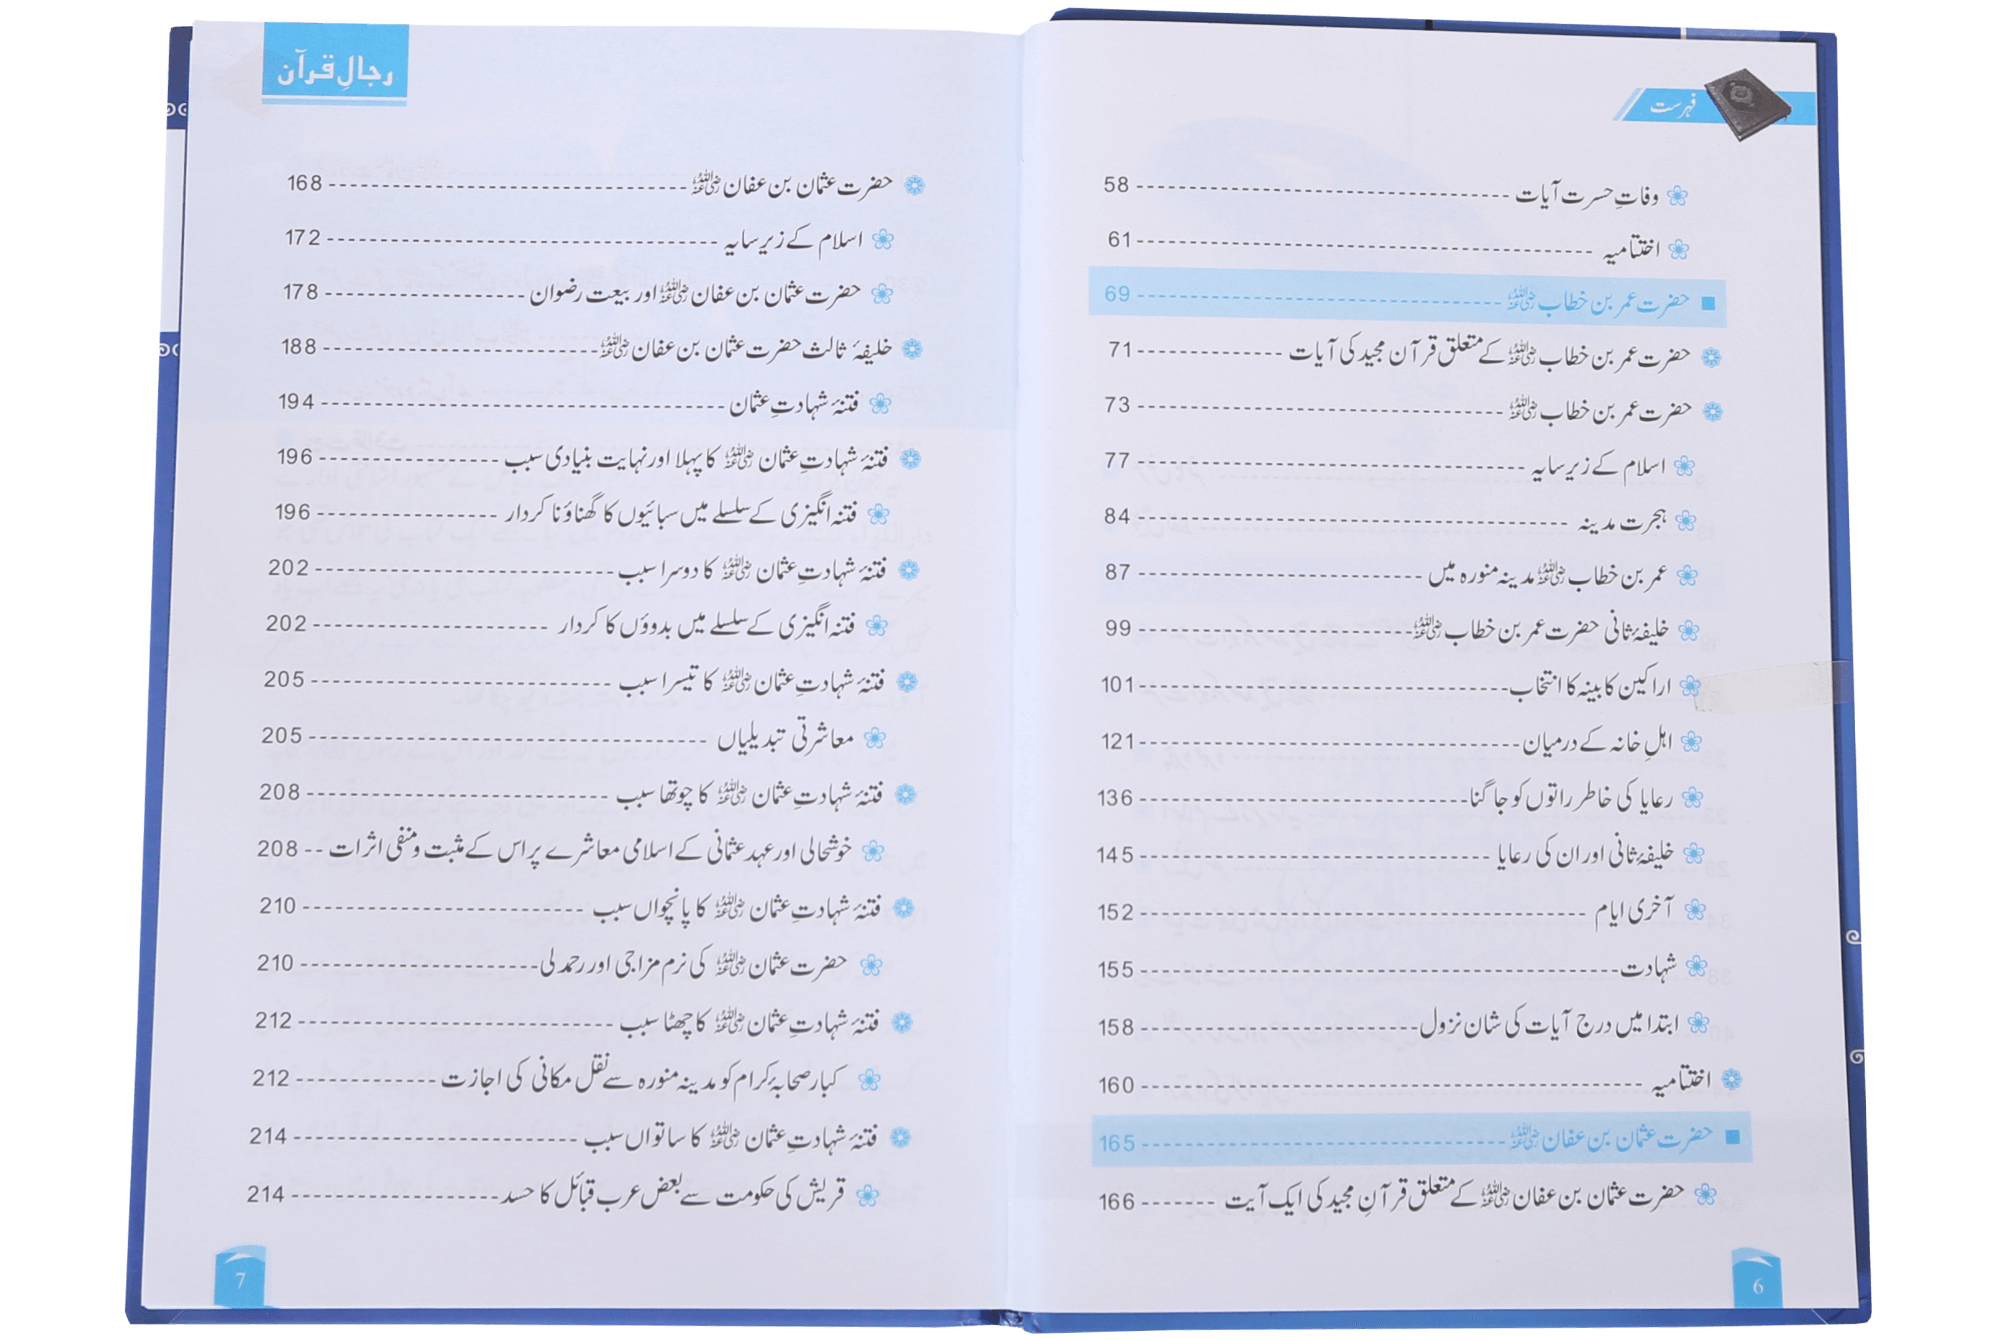 فہرست
وفاتِ حسرت آیات 58
اختتامیہ 61
حضرت عمر بن خطاب رضی اللہ عنہ 69
حضرت عمر بن خطاب رضی اللہ عنہ کے متعلق قرآن مجید کی آیات 71
حضرت عمر بن خطاب رضی اللہ عنہ 73
اسلام کے زیرِ سایہ 77
ہجرت مدینہ 84
عمر بن خطاب رضی اللہ عنہ مدینہ منورہ میں 87
خلیفۂ ثانی حضرت عمر بن خطاب رضی اللہ عنہ 99
اراکین کابینہ کا انتخاب 101
اہلِ خانہ کے درمیان 121
رعایا کی خاطر راتوں کو جاگنا 136
خلیفۂ ثانی اور ان کی رعایا 145
آخری ایام 152
شہادت 155
ابتدا میں درج آیات کی شان نزول 158
اختتامیہ 160
حضرت عثمان بن عفان رضی اللہ عنہ 165
حضرت عثمان بن عفان رضی اللہ عنہ کے متعلق قرآنِ مجید کی ایک آیت 166
6
رجالِ قرآن
حضرت عثمان بن عفان رضی اللہ عنہ 168
اسلام کے زیرِ سایہ 172
حضرت عثمان بن عفان رضی اللہ عنہ اور بیعت رضوان 178
خلیفۂ ثالث حضرت عثمان بن عفان رضی اللہ عنہ 188
فتنۂ شہادتِ عثمان 194
فتنۂ شہادتِ عثمان رضی اللہ عنہ کا پہلا اور نہایت بنیادی سبب 196
فتنہ انگیزی کے سلسلے میں سبائیوں کا گھناؤنا کردار 196
فتنۂ شہادتِ عثمان رضی اللہ عنہ کا دوسرا سبب 202
فتنہ انگیزی کے سلسلے میں بدوؤں کا کردار 202
فتنۂ شہادتِ عثمان رضی اللہ عنہ کا تیسرا سبب 205
معاشرتی تبدیلیاں 205
فتنۂ شہادتِ عثمان رضی اللہ عنہ کا چوتھا سبب 208
خوشحالی اور عہد عثمانی کے اسلامی معاشرے پر اس کے مثبت و منفی اثرات 208
فتنۂ شہادتِ عثمان رضی اللہ عنہ کا پانچواں سبب 210
حضرت عثمان رضی اللہ عنہ کی نرم مزاجی اور رحمدلی 210
فتنۂ شہادتِ عثمان رضی اللہ عنہ کا چھٹا سبب 212
کبار صحابۂ کرام کو مدینہ منورہ سے نقل مکانی کی اجازت 212
فتنۂ شہادتِ عثمان رضی اللہ عنہ کا ساتواں سبب 214
قریش کی حکومت سے بعض عرب قبائل کا حسد 214
7